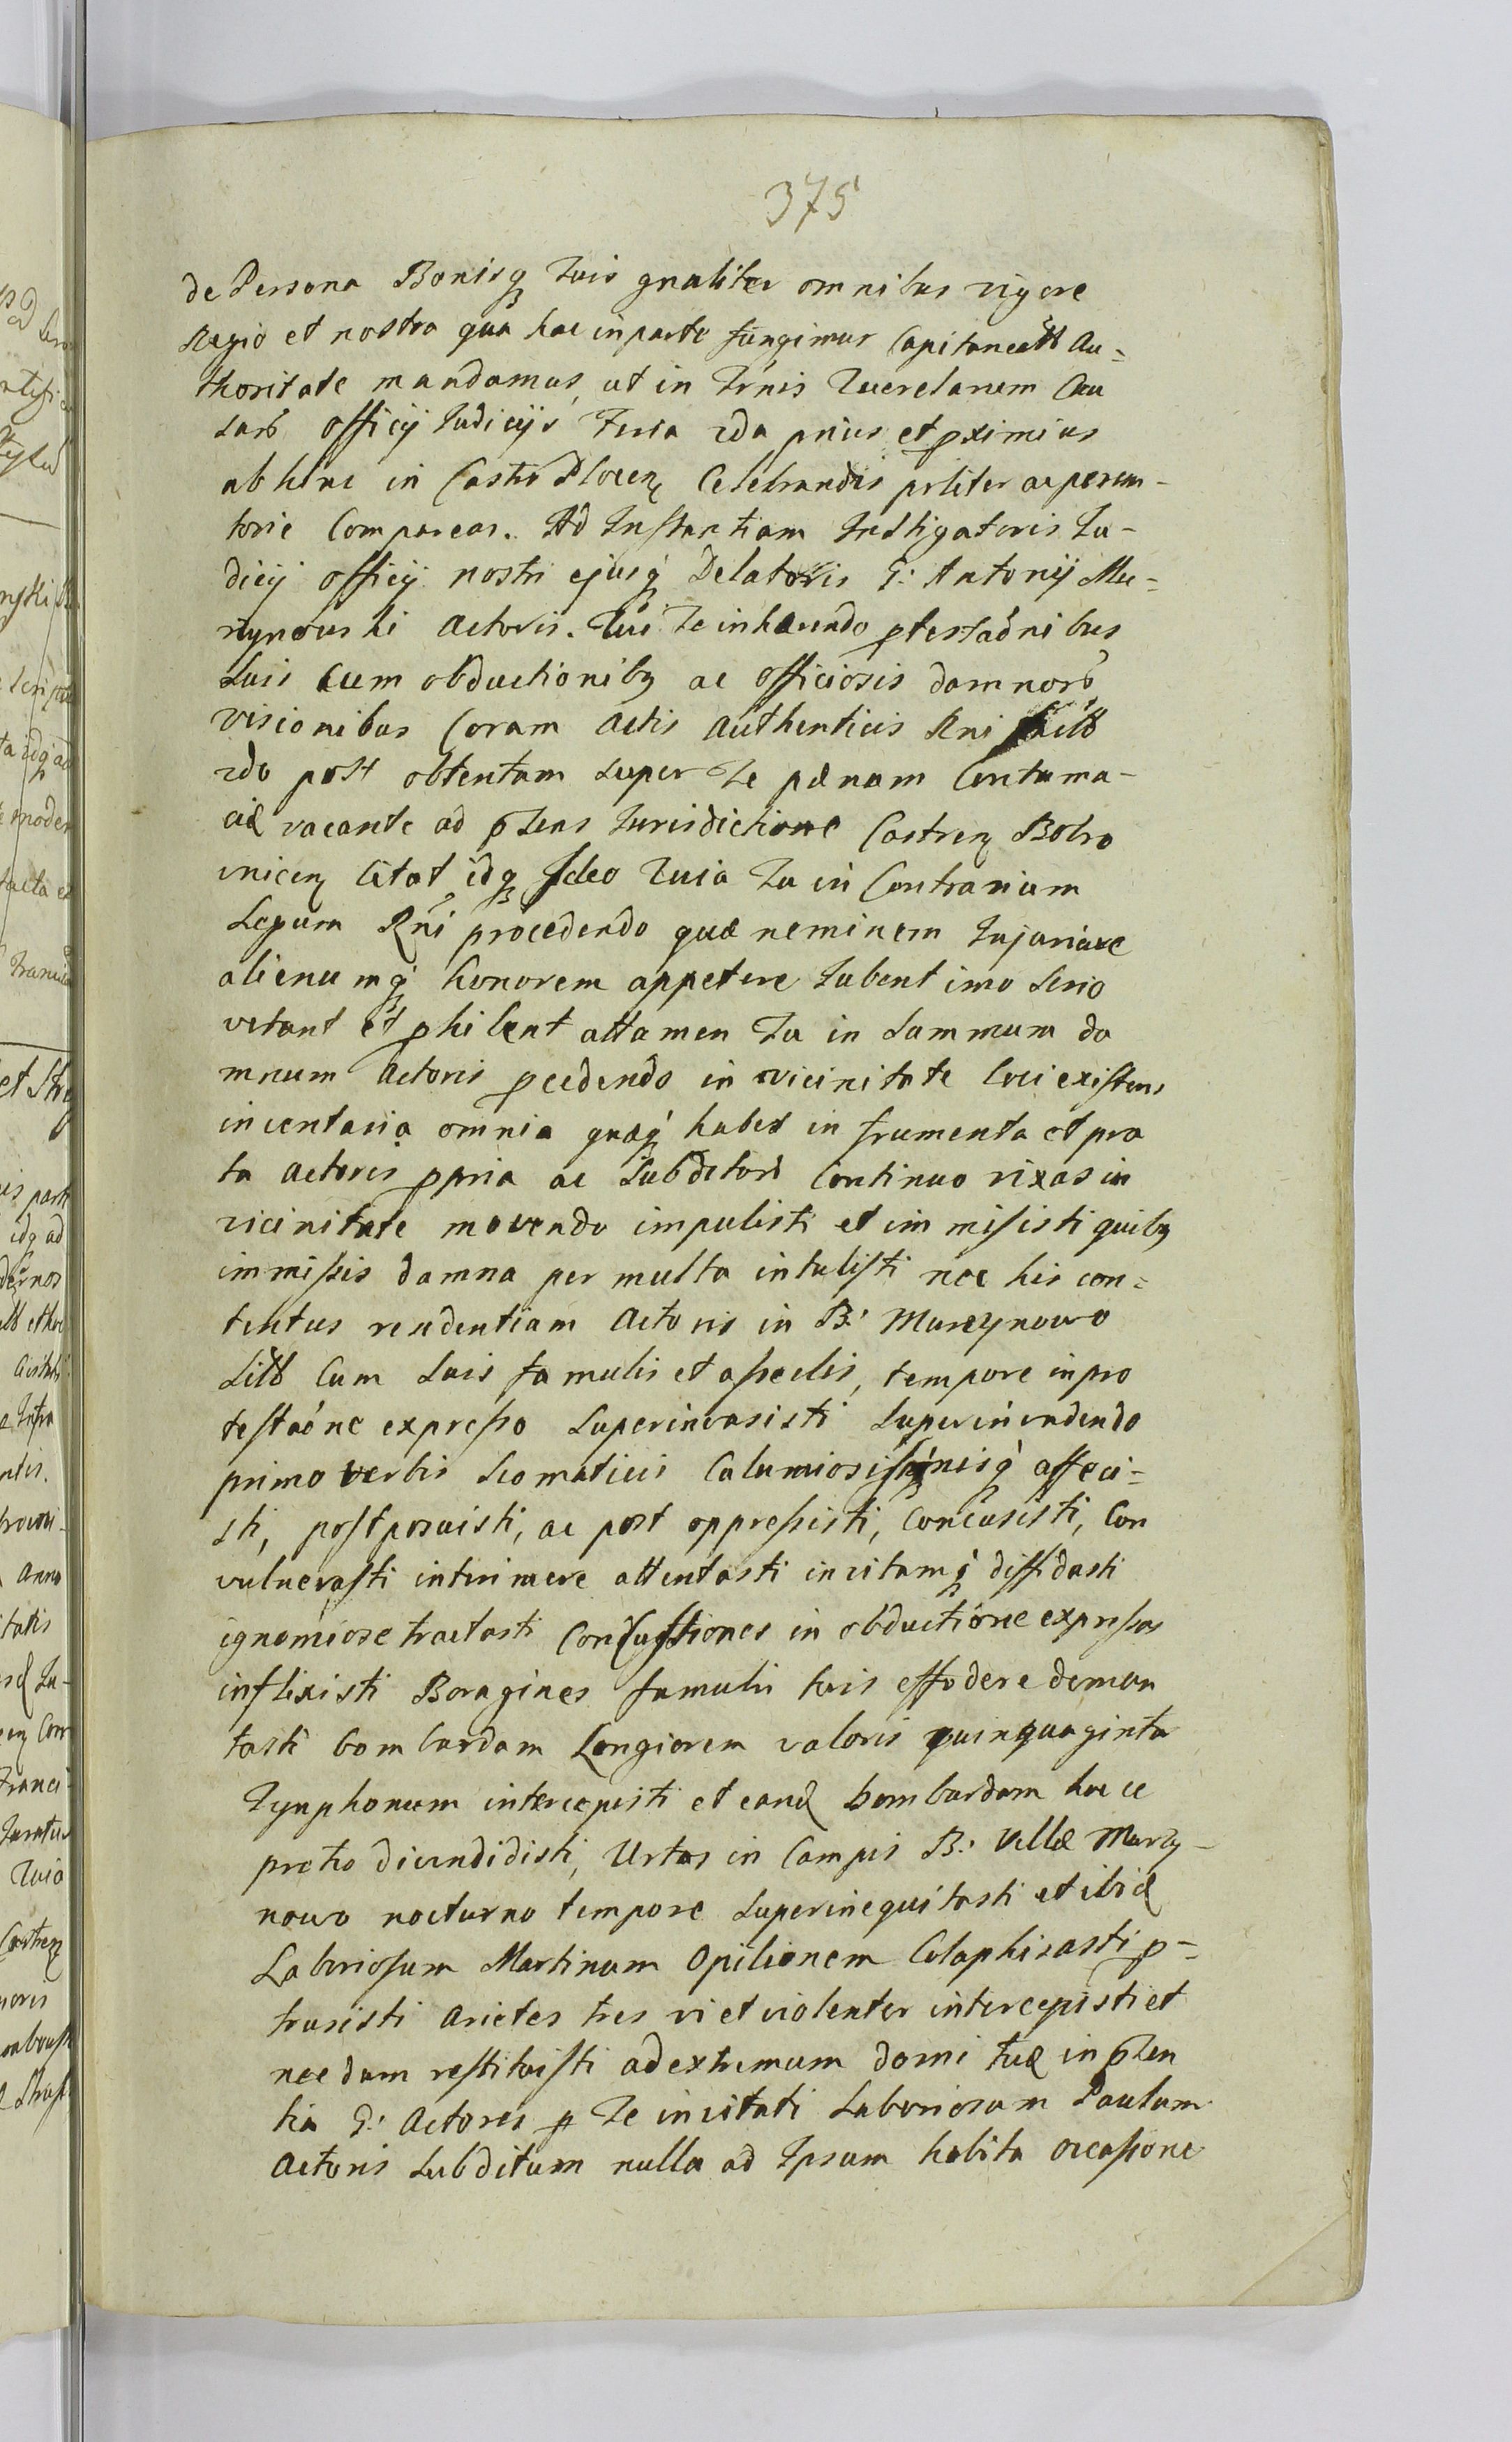 375
de Persona Bonisq Tuis gnaliter omnibus vigore
Regio et nostra qua hac in parte fungimur Capitaneali Au=
thoritate mandamus, ut in Trnis Querelarum Cau
sarô officij Judicijs Feria 2da prius et pximius
abhinc in Castro Plocen Celebrandis prliter ac perem-
torie Compareas. Ad Instantiam Instigatoris Ju-
dicij officij nostri ejusq Delatoris G: Antonij Mu=
rzynowski Actoris. Qui Te inhærendo ptestaonibus
Suis Cum obductionibg ac officiosis damnorô
visionibus Coram Actis Authenticis Rni
2do post obtentam super Te pænam Contuma-
ciæ vacante ad pSens Jurisdictione Castren Bobro
vnicen Citat idq Ideo Quia Tu in Contrarium
Legum Rni procedendo quæ neminem Injuriare
alienumq honorem appetere Jubent imo Serio
vetant et phibent attamen Tu in Summum da
mnum Actoris pcedendo in vicinitate Loci existens
inventaria omnia quæq habes in frumenta et pra
ta Actoris ppria ac Subditorô Continuo rixas in
vicinitate movendo impulisti et immisisti quibg
immissis damna per multa intulisti nec his con=
tentus residentiam Actoris in B: Murzynowo
Sitô Cum Suis famulis et asseclis, tempore in pro
testaône expresso Superinvasisti Superinvadendo
primo verbis Scomaticis Calumiosi affeci=
sti, postposuisti, ac post oppressisti, Concusisti, Con
vulnerasti interimere attentasti invitamq diffidasti
ignomiose tractasti Confustiones in obductione expressas
inflixisti Boragines famulis tuis effodere deman
tasti bombardam Longiorem valoris quinquaginta
Tynphonum intercepisti et eand bombardam hac ce
pretio divendidisti, Urtas in Campis B: Villæ Murzy-
nowo nocturno tempore Superinequitasti et ibid
Laboriosum Martinum Opilionem Colaphisasti p=
trusisti Arietes tres vi et violenter intercepisti et
nec dum restituisti ad extremum domi tuæ in pSen
tia G: Actores p Te invitati Laboriosum Paulum
Actoris Subditum nulla ad Ipsum habita occasione